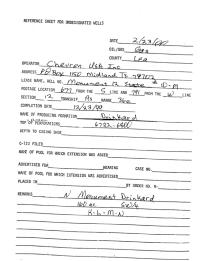 REFERENCE SHEET FOR UNDESIGNATED WELLS
DATE 2/23/90
OIL/GAS Gas
COUNTY Lea
OPERATOR Chevron USA Inc
ADDRESS PO Box 1150 Midland TX 79702
LEASE NAME, WELL NO. Monument 12 State
FOOTAGE LOCATION FROM THE S LINE AND FROM THE W LINE
SECTION 12 TOWNSHIP RANGE 36e
COMPLETION DATE 12/23/89
NAME OF PRODUCING FORMATION Drinkard
TOP OF PERFORATIONS
DEPTH TO CASING SHOE
C-123 FILED
NAME OF POOL FOR WHICH EXTENSION WAS ASKED
ADVERTISED FOR HEARING CASE NO.
NAME OF POOL FOR WHICH EXTENSION WAS ADVERTISED
PLACED IN BY ORDER NO. R-
REMARKS N Monument Drinkard
160 ac SW/4
K-L-M-N